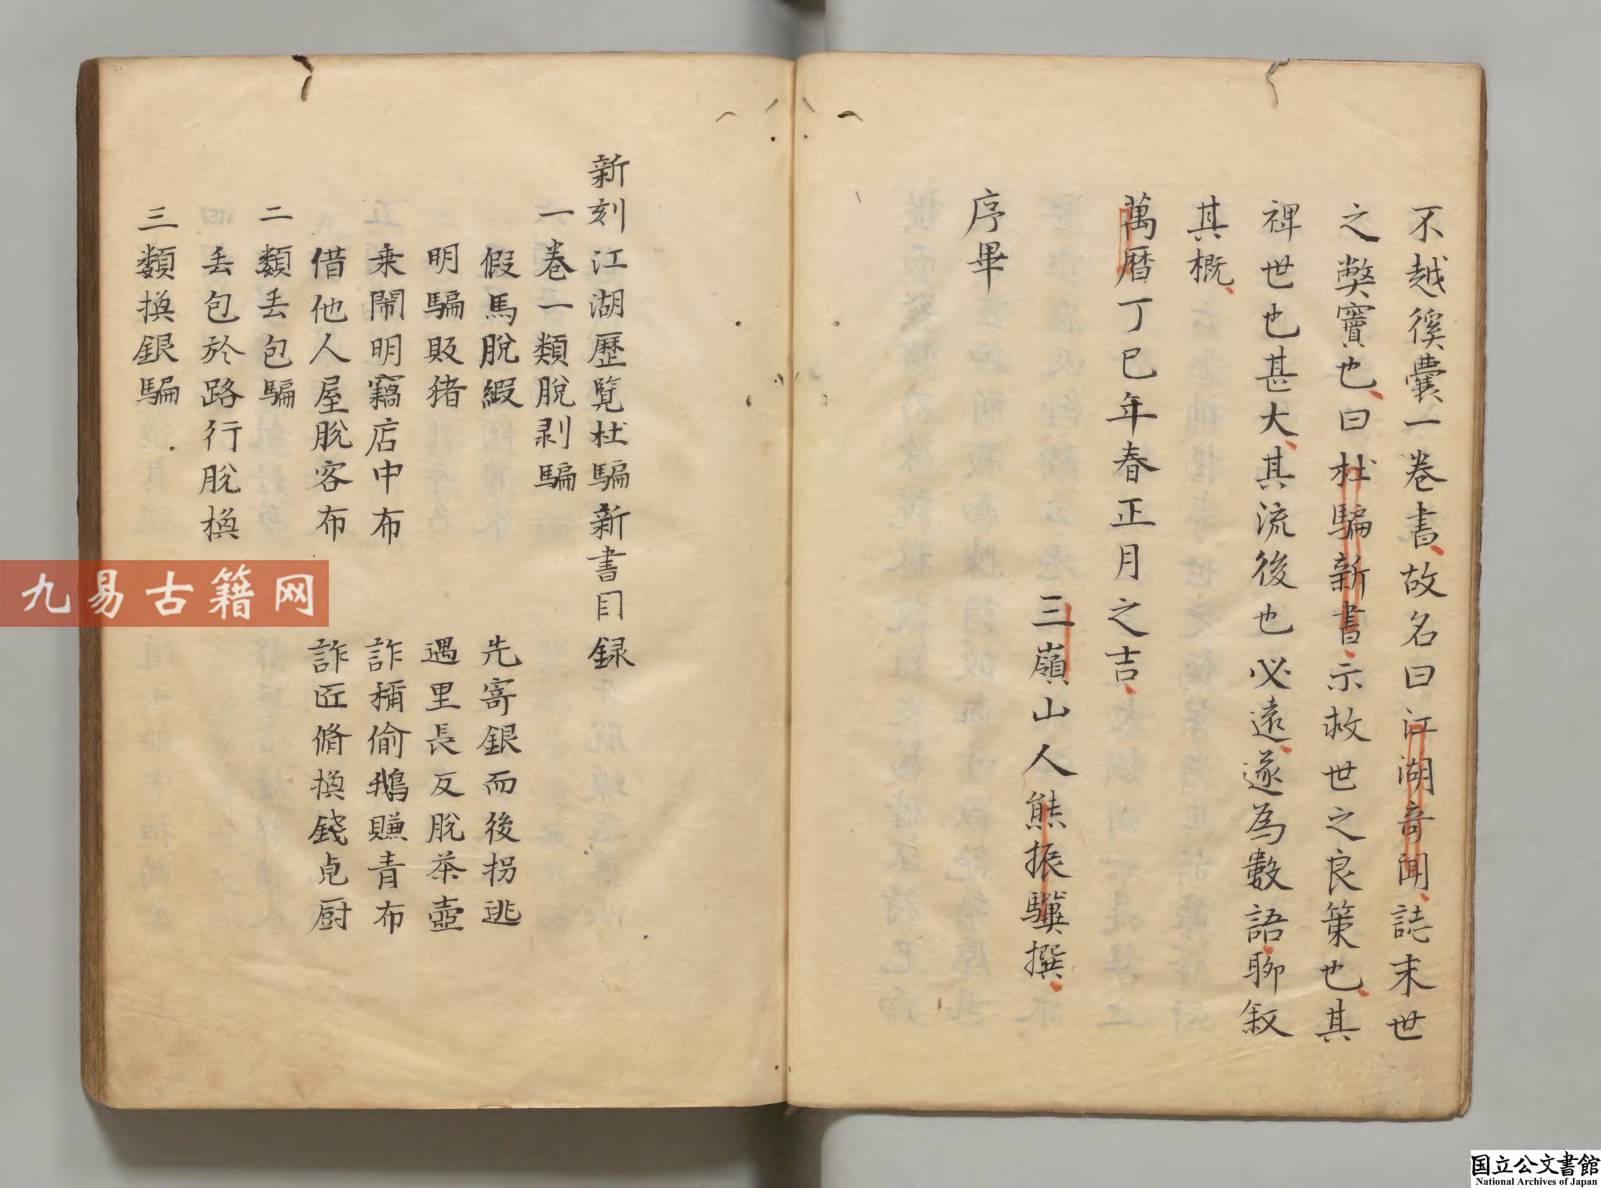 不越徯囊一卷書故名曰江湖竒聞誌末世
之弊竇也曰杜騙新書示救世之良策也其
裨世也甚大其流後也必遠遂為數語聊叙
其概
萬曆丁巳年春正月之吉
三嶺山人熊振驥撰
序畢
新刻江湖歷覽杜騙新書目録
一卷一類脫剥騙
假馬脫緞　先寄銀而後拐逃
明騙販猪　遇里長反脫茶壺
乘閙明竊店中布　詐稱偷鵝賺青布
借他人屋脫客布　詐匠脩換錢卓厨
二類丢包騙
丢包於路行脫換
三類換銀騙
九易古籍网
国立公文書館
National Archives of Japan